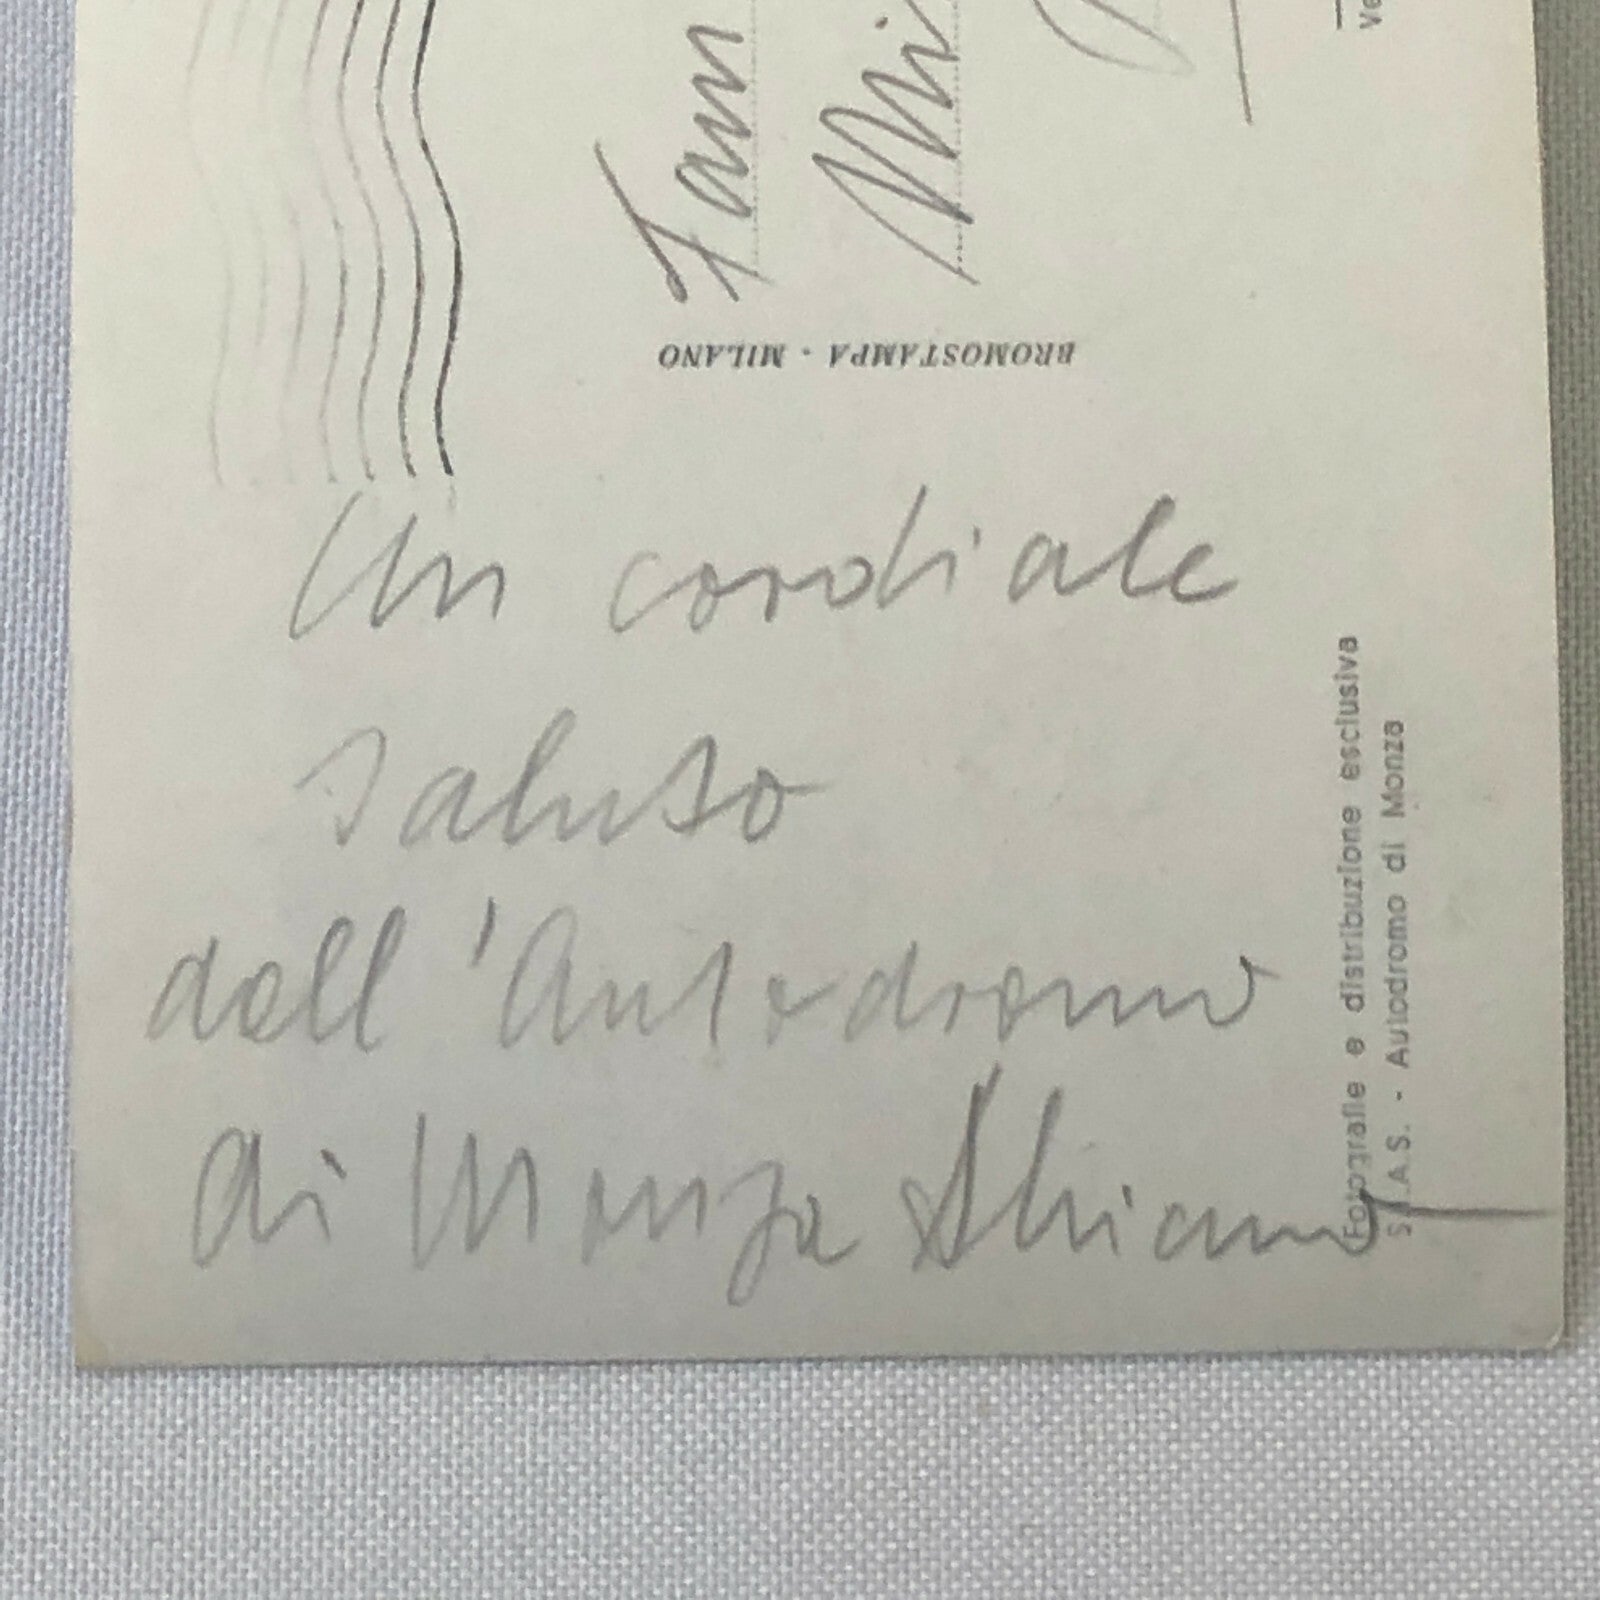 Un cordiale
saluto
dall'Autodromo
di Monza
Fam
BROMOSTAMPA - MILANO
Fotografie e distribuzione esclusiva
S.I.A.S. - Autodromo di Monza